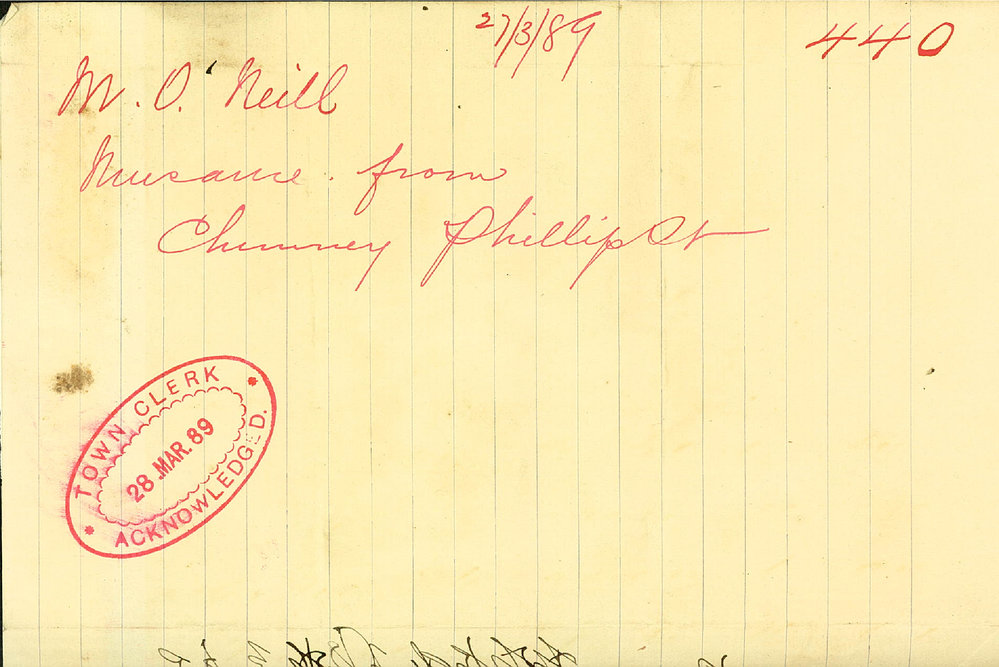 27/3/89
440
M. O'Neill
Nuisance from
Chimney Phillip St
TOWN CLERK
28 MAR. 89
ACKNOWLEDGED.